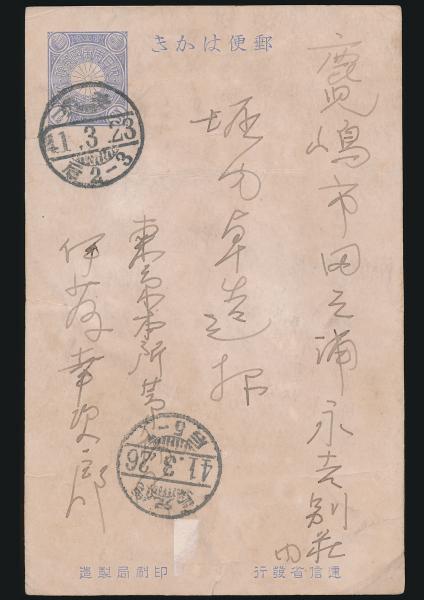 郵便はかき
鹿児嶋市田之浦永吉別荘
内
堀内卓造様
東京本所茅
伊藤幸次郎
41.3.23
2-3
41.3.26
逓信省發行
印刷局製造